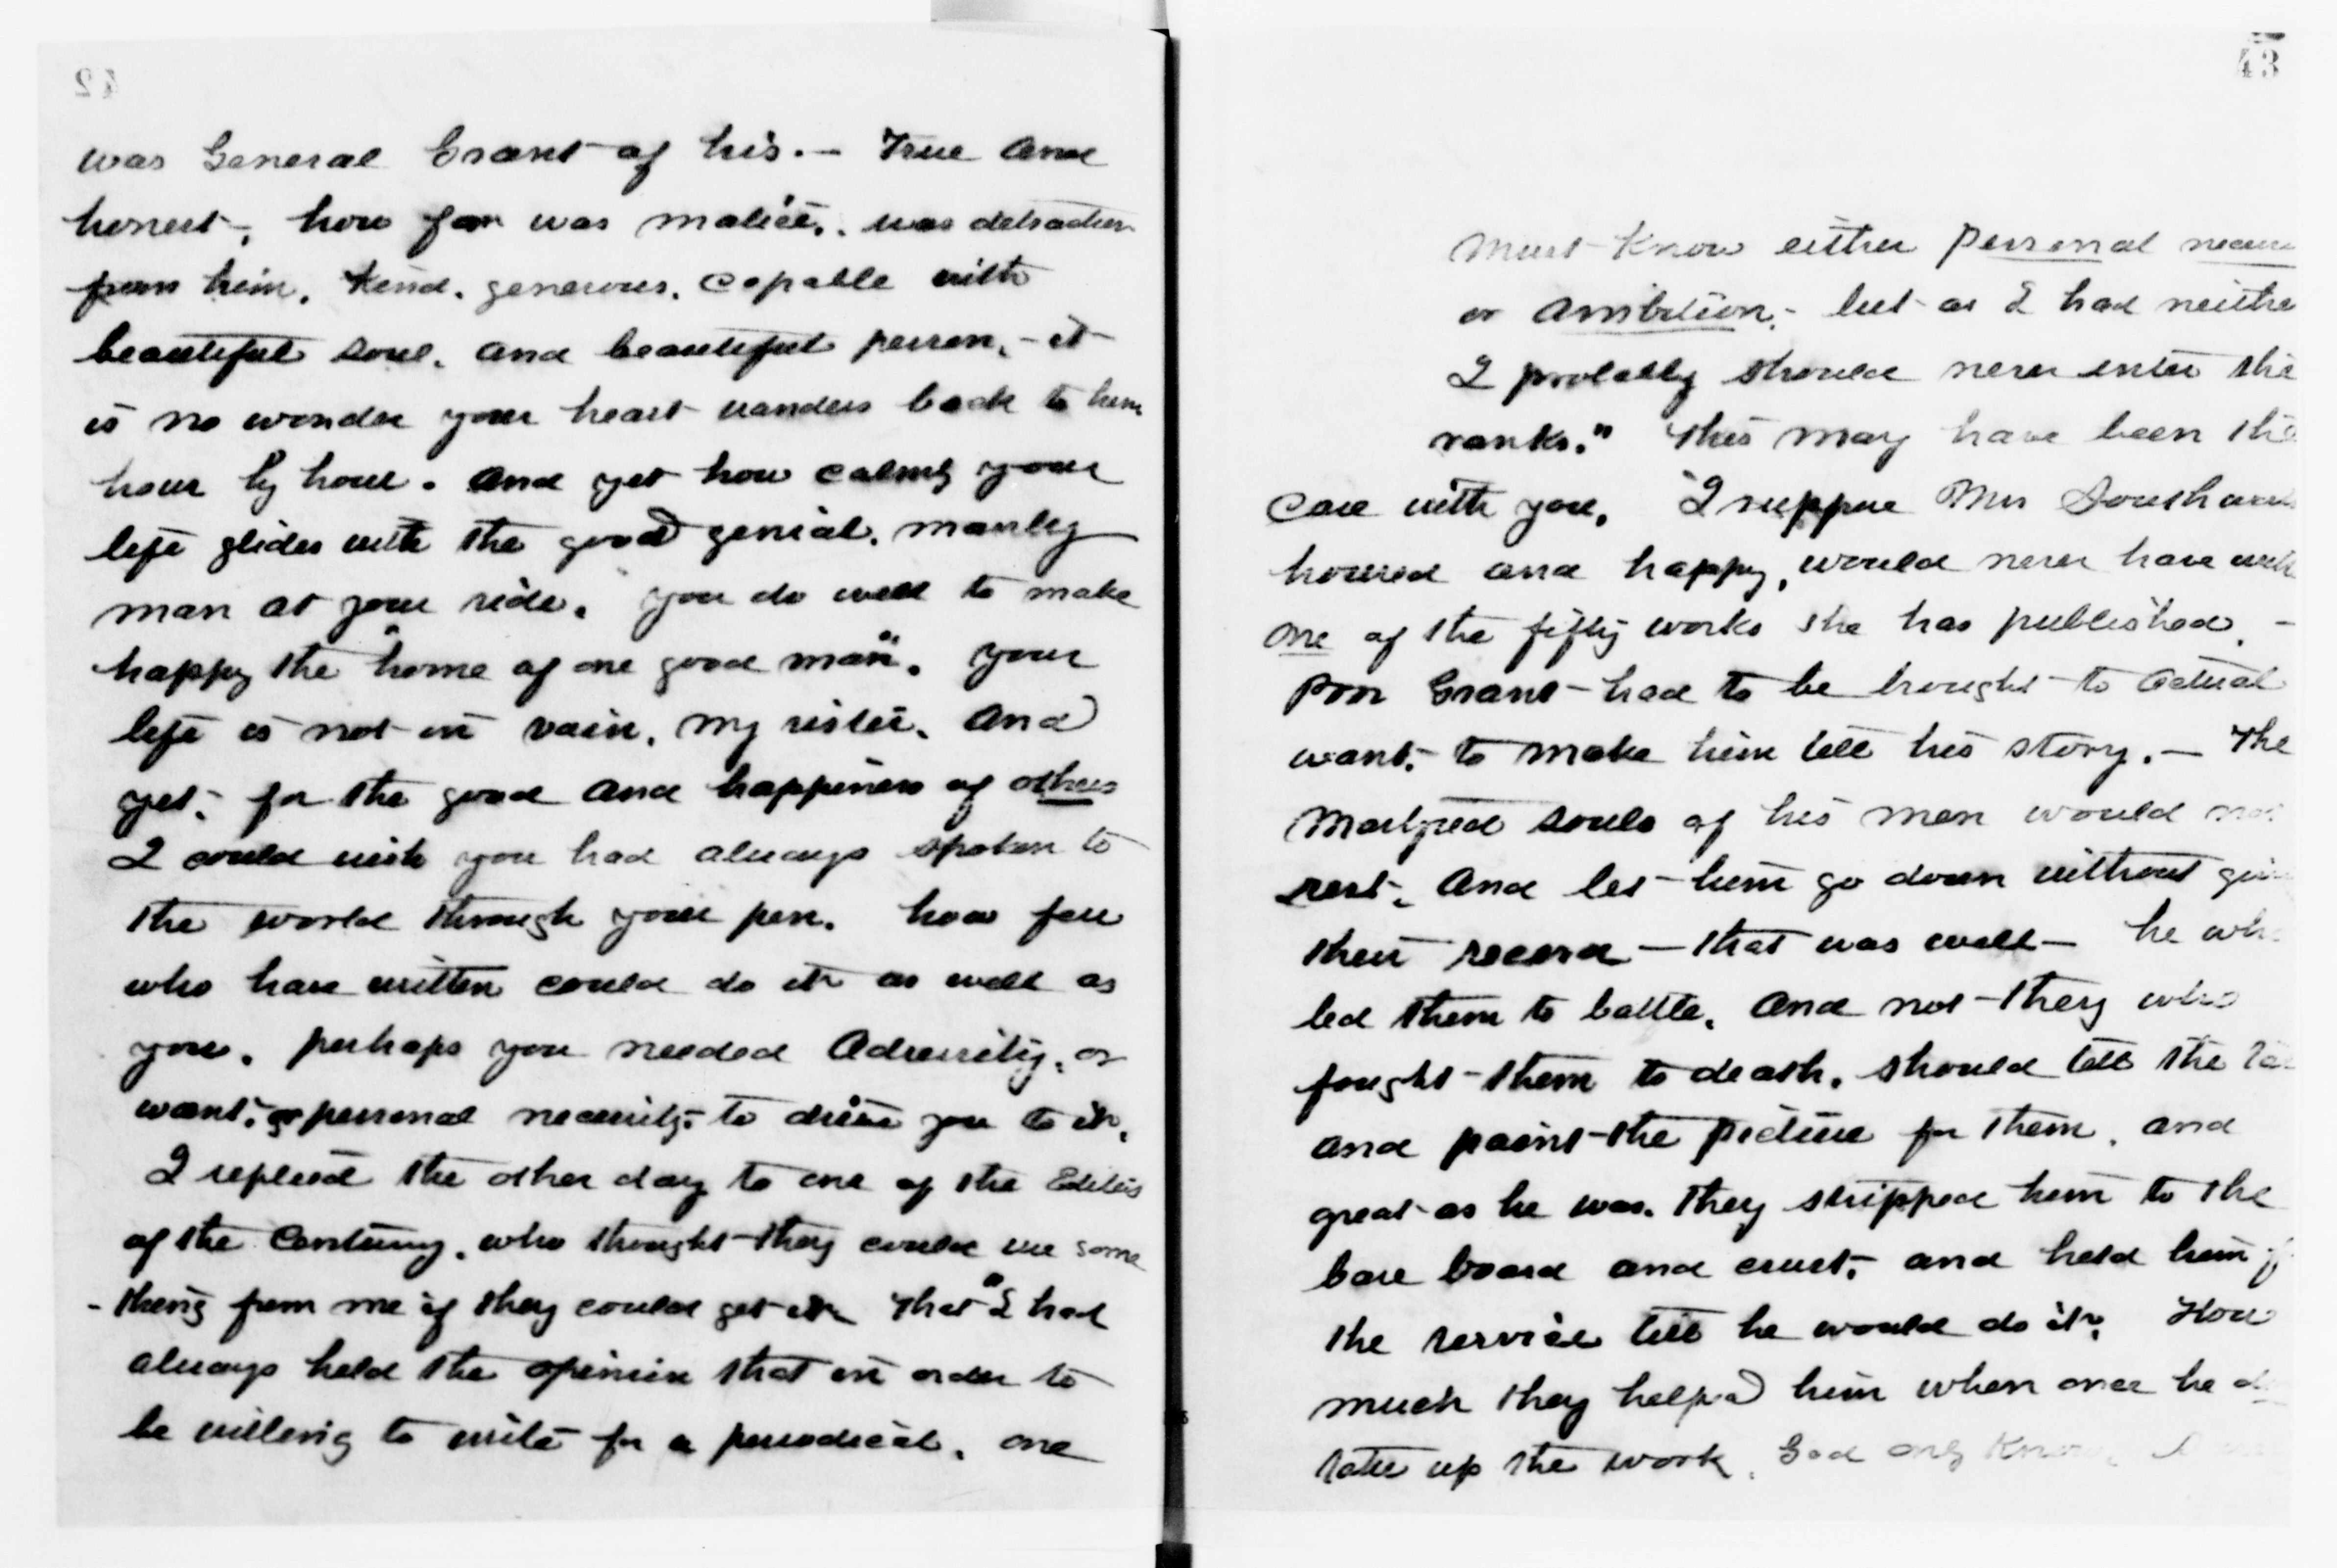 42
was General Grant of his. — True and
honest, how far was malice, was detraction
from him, kind, generous, capable with
beautiful soul, and beautiful person, - it
is no wonder your heart wanders back to him
hour by hour. And yet how calmly your
life glides with the good genial, manly
man at your side. You do well to make
happy the "home of one good man". Your
life is not in vain, my sister, and
yet, for the good and happiness of others
I could wish you had always spoken to
the world through your pen. how few
who have written could do it as well as
you. perhaps you needed Adversity, or
want, or personal necessity, to drive you to it.
I replied the other day to one of the Editors
of the Century, who thought they could use some
-thing from me if they could get it That "I had
always held the opinion that in order to
be willing to write for a periodical, one
43
Must Know either Personal
or Ambition, - but as I had
I probably should never enter the
ranks." This may have been the
case with you, I suppose Mrs
housed and happy, would never have
one of the fifty works she has published. -
Poor Grant had to be brought to actual
want, to make him tell his story. — The
Martyred souls of his men would not
rest, and let him go down without
their record — that was well — he who
led them to battle, and not they who
fought them to death, should tell the
and paint the picture for them, and
great as he was, they stripped him to the
bare board and crust, and held him
the service till he would do it, How
much they helped him when once he
up the work, God only